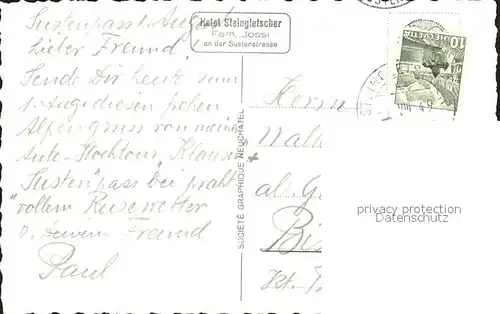 Sustenpass 1. August
Lieber Freund!
Sende Dir heute zum
1. Aug. diesen frohen
Alpengruss von meiner
Auto-Hochtour "Klausen
"Susten" pass bei pracht-
vollem Reisewetter
Freund
Paul
Hotel Steingletscher
Fam. Jossi
an der Sustenstrasse
SOCIÉTÉ GRAPHIQUE NEUCHATEL
Herrn
HELVETIA
10
privacy protection
Datenschutz